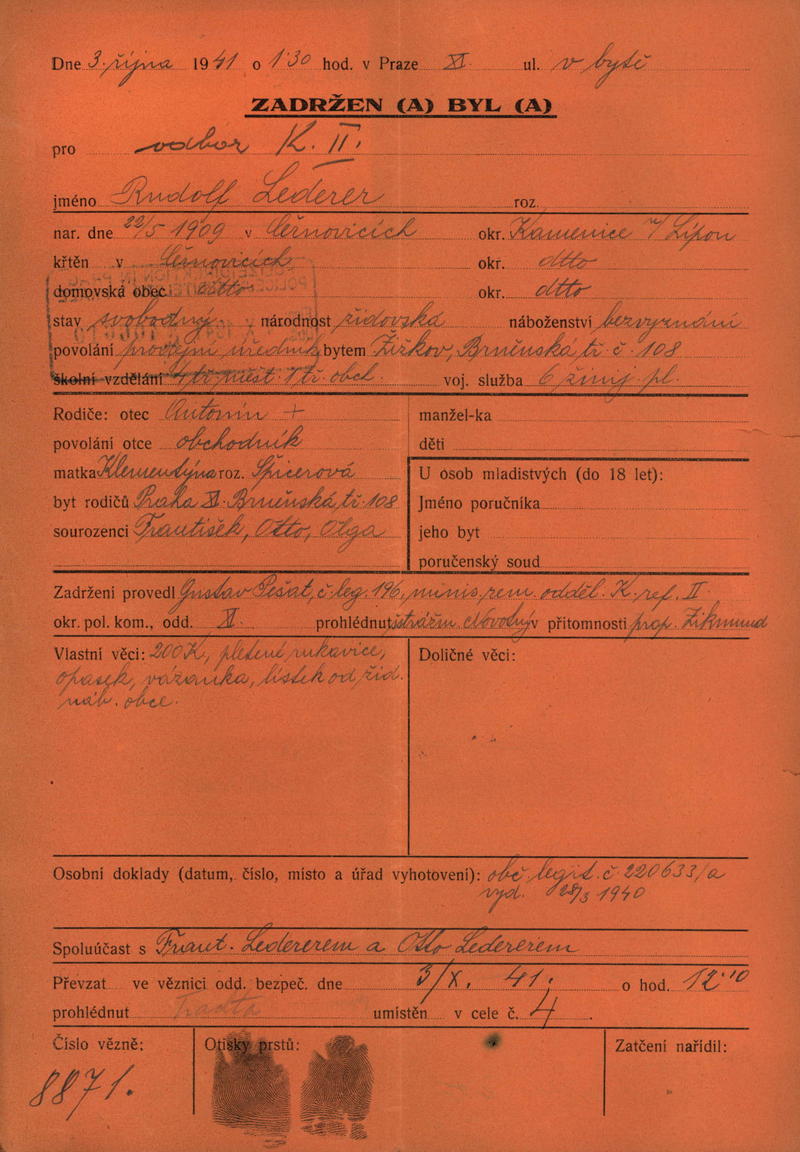 Dne 3. října 1941 o 1·30 hod. v Praze XI. ul. v bytě
ZADRŽEN (A) BYL (A)
pro odbor K. II.
jméno Rudolf Lederer roz.
nar. dne 22/5 1909 v Černovicích okr. Kamenice n/Lipou
křtěn v Černovicích okr. dtto
domovská obec dtto okr. dtto
stav svobodný národnost židovská náboženství bez vyznání
povolání úředník bytem Žižkov, Brněnská tř. č. 108
školní vzdělání 4 tř. měšt. 1 tř. obch. voj. služba 6
Rodiče: otec Antonín + manžel-ka
povolání otce obchodník děti
matka Klementýna roz. Špicerová U osob mladistvých (do 18 let):
byt rodičů Praha XI. Brněnská tř. 108 Jméno poručníka
sourozenci František, Otto, Olga jeho byt
poručenský soud
Zadržení provedl Gustav Pešat, č. leg. 196, odděl. K. ref. II.
okr. pol. kom., odd. XI. prohlédnut strážm. Novotný v přitomnosti Zikmund
Vlastní věci: 200 K, pletené rukavice, Doličné věci:
opasek, vázanka, lístek od žid.
náb. obce.
Osobní doklady (datum, číslo, místo a úřad vyhotovení): obč. legit. č. 220633/a
vyd. 28/3 1940
Spoluúčast s Frant. Ledererem a Otto Ledererem
Převzat ve věznici odd. bezpeč. dne 3/X. 41. o hod. 12·10
prohlédnut umístěn v cele č. 4.
Číslo vězně: Otisky prstů: Zatčení nařídil:
8871.